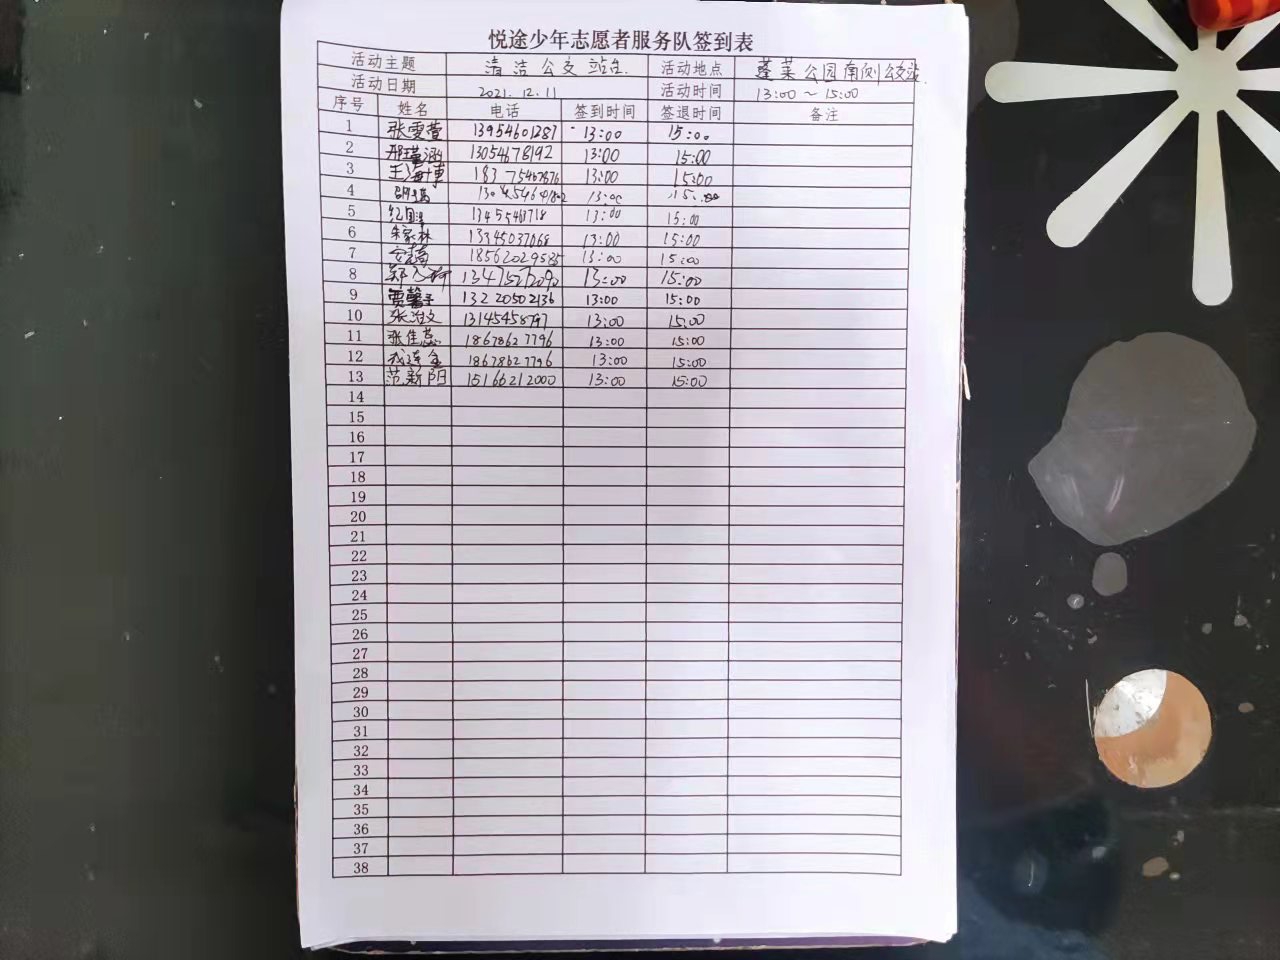 悦途少年志愿者服务队签到表
活动主题 清洁公交站台 活动地点 蓬莱公园南侧公交站.
活动日期 2021.12.11 活动时间 13:00～15:00
序号 姓名 电话 签到时间 签退时间 备注
1 张雯萱 13954601287 13:00 15:00
2 邢瑾涵 13054678192 13:00 15:00
3 王海博 18375467876 13:00 15:00
4 13:00 15:00
5 13455463718 13:00 15:00
6 朱家林 13345037068 13:00 15:00
7 安蕊 18562029585 13:00 15:00
8 郑 13:00 15:00
9 贾馨子 13220502136 13:00 15:00
10 张 13145458797 13:00 15:00
11 张佳蕊 18678627796 13:00 15:00
12 18678627796 13:00 15:00
13 范新阳 15166212000 13:00 15:00
14
15
16
17
18
19
20
21
22
23
24
25
26
27
28
29
30
31
32
33
34
35
36
37
38